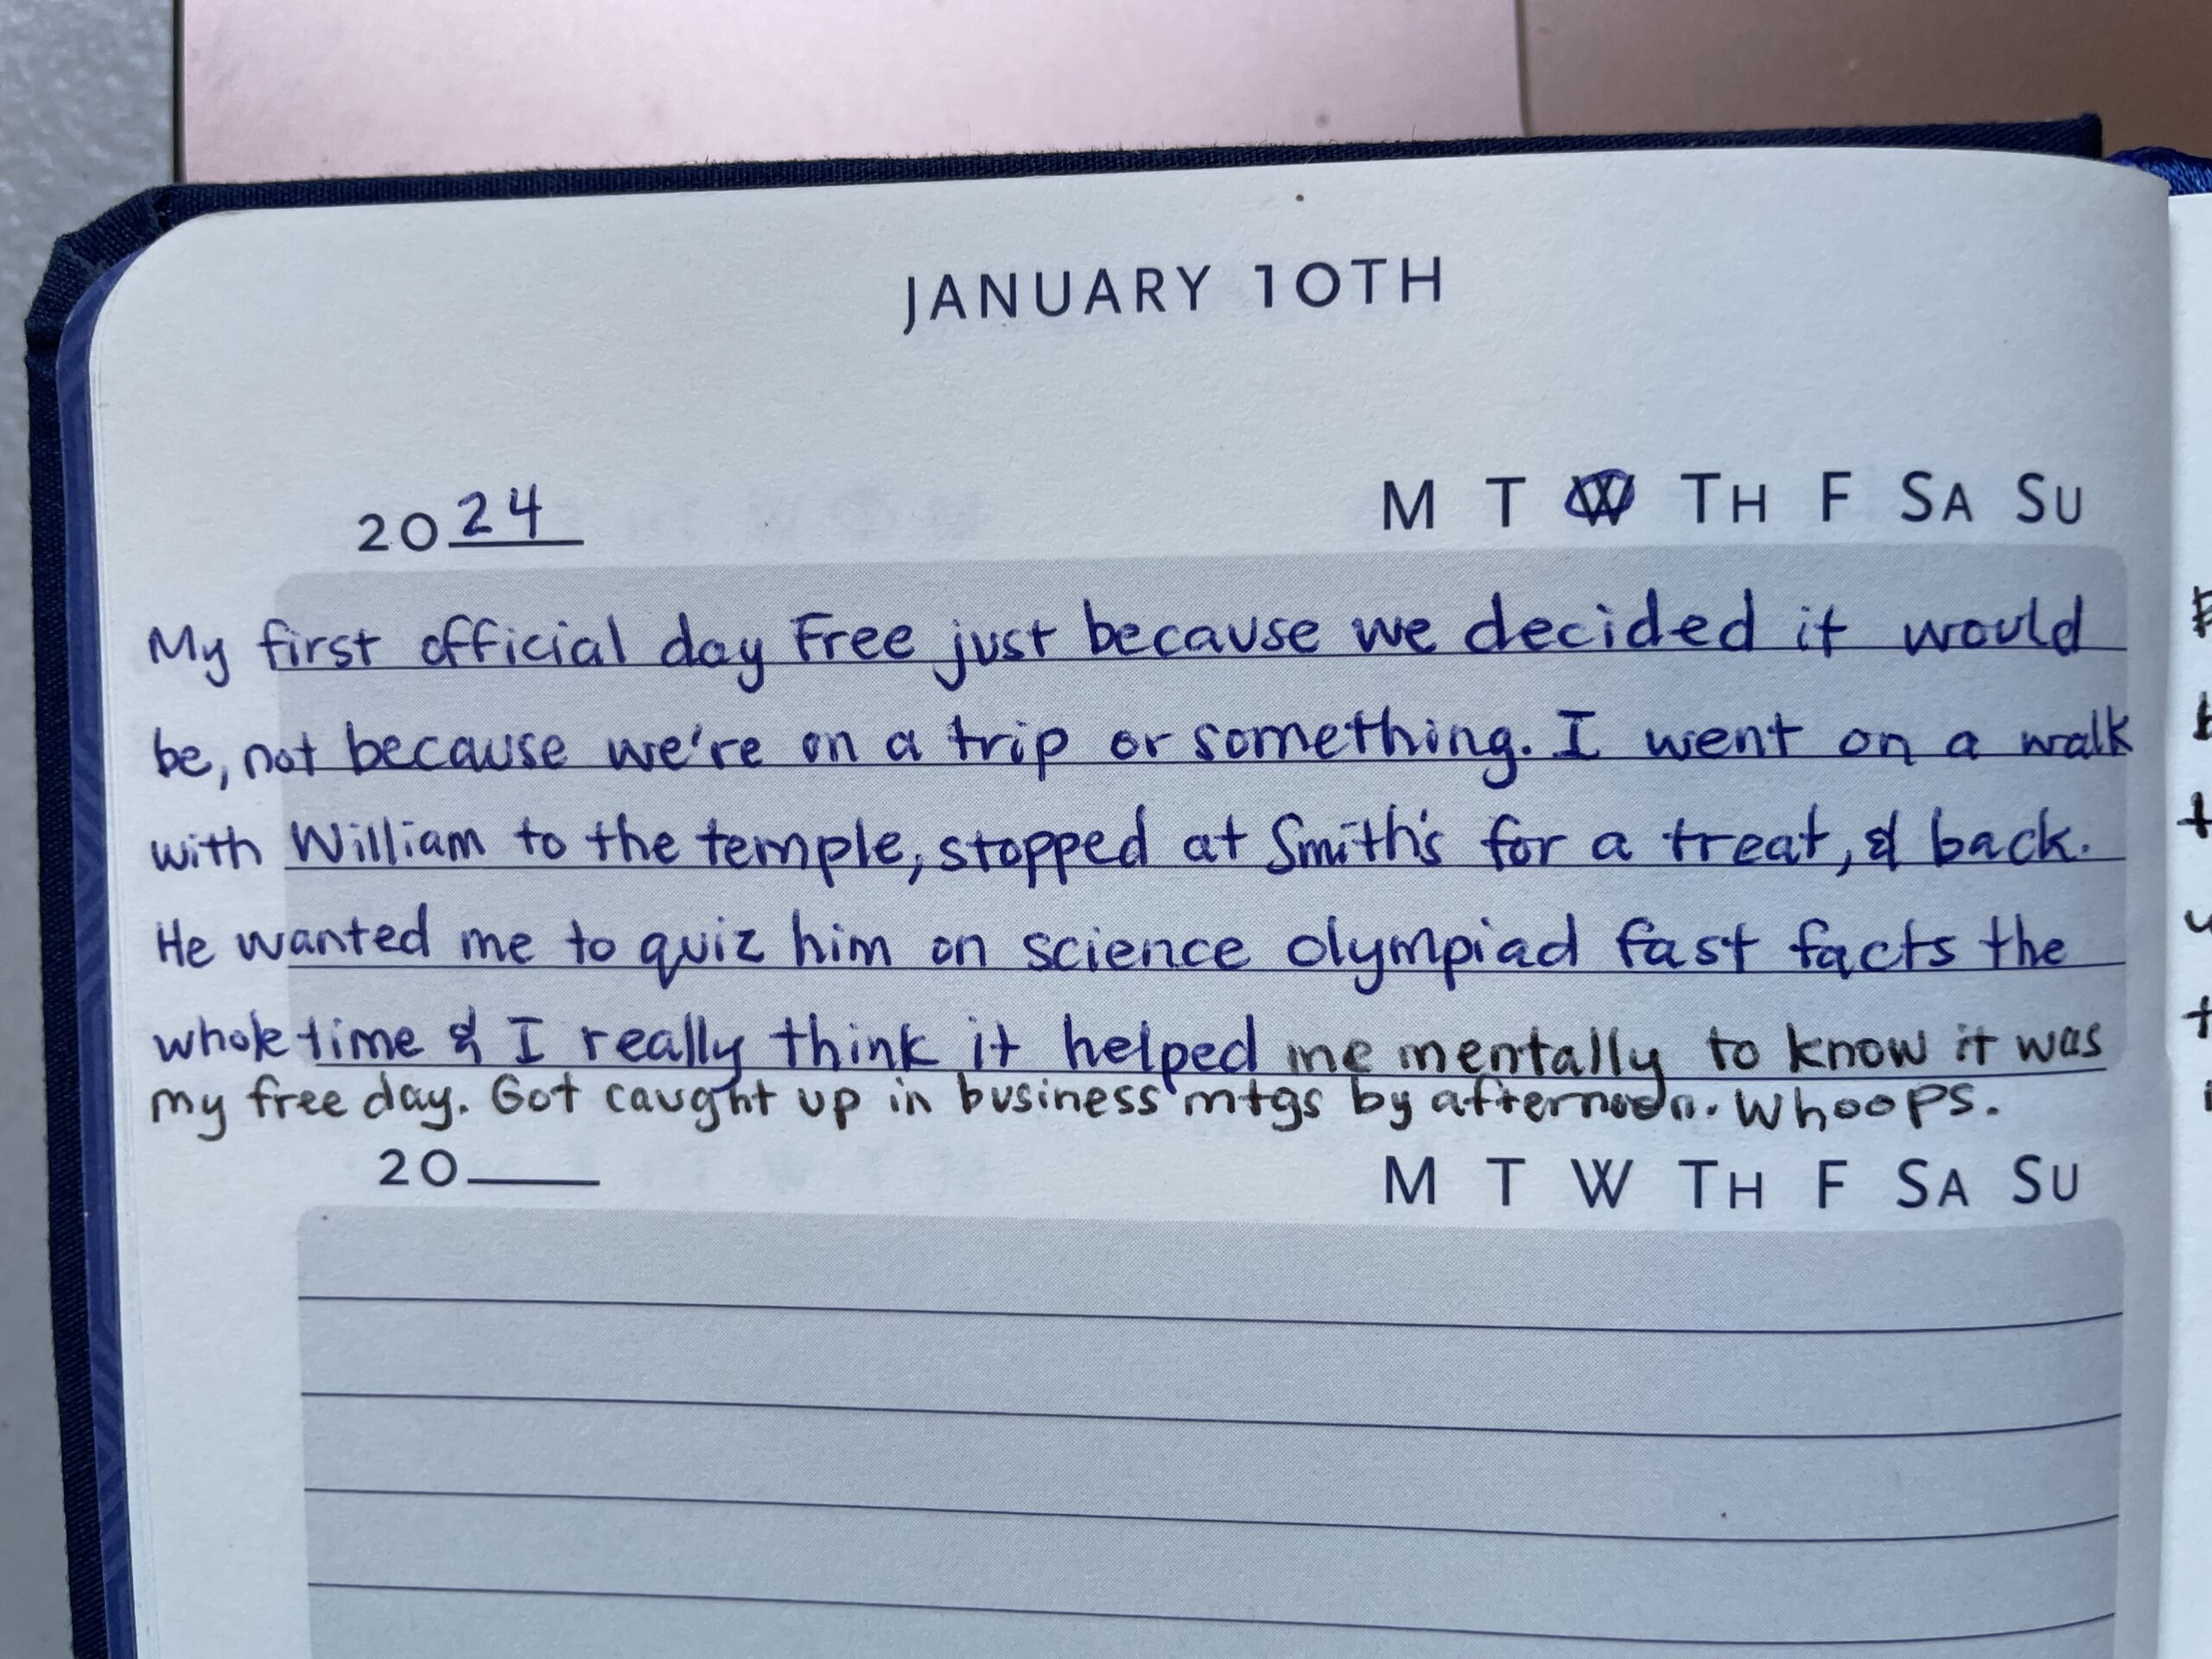 JANUARY 10TH
2024 M T W TH F SA SU
My first official day free just because we decided it would
be, not because we're on a trip or something. I went on a walk
with William to the temple, stopped at Smith's for a treat, & back.
He wanted me to quiz him on science olympiad fast facts the
whole time & I really think it helped me mentally to know it was
my free day. Got caught up in business mtgs by afternoon. Whoops.
20___ M T W TH F SA SU